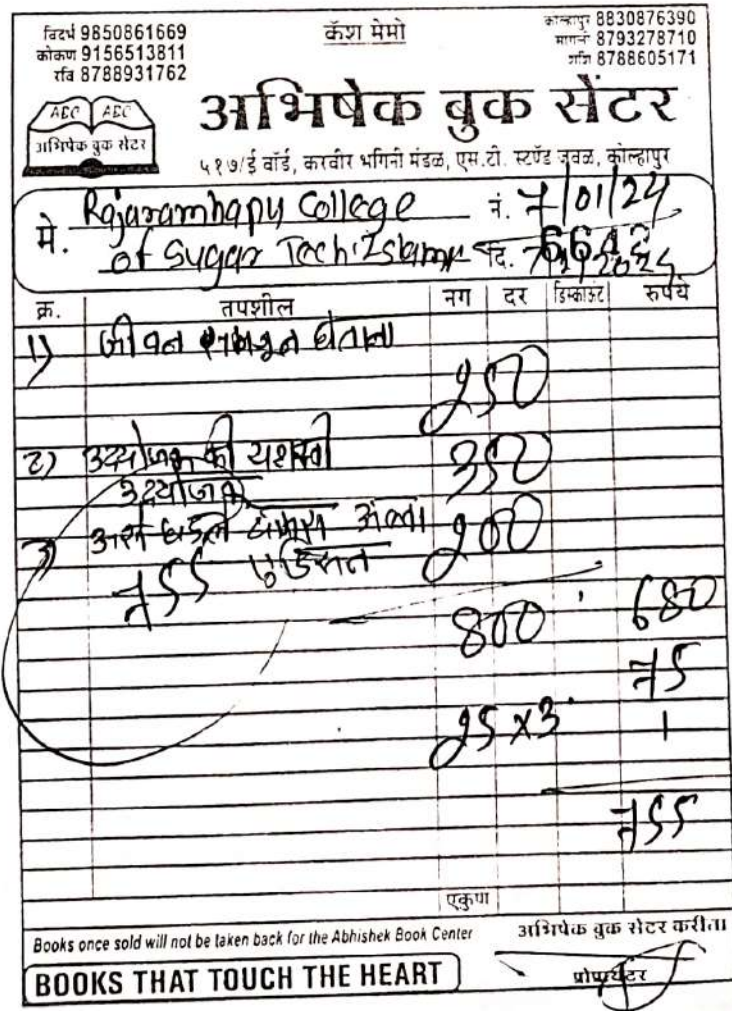 विदर्भ 9850861669
कोकण 9156513811
रवि 8788931762
कॅश मेमो
कोल्हापुर 8830876390
8793278710
शशि 8788605171
ABC ABC
अभिषेक बुक सेंटर
अभिषेक बुक सेंटर
५१७/ई वॉर्ड, करवीर भगिनी मंडळ, एस.टी. स्टॅण्ड जवळ, कोल्हापुर
मे. Rajarambapu College
of Sugar Tech.
नं. 7/01/24
दि.
क्र. तपशील नग दर डिस्काऊंट रुपये
1) जीवन घेताना
250
2) उद्योजक की यशस्वी 350
उद्योजक
3) असे घडले थॉमस अल्वा 200
एडिसन
755
800 680
75
25 x 3
755
एकुण
Books once sold will not be taken back for the Abhishek Book Center
अभिषेक बुक सेंटर करीता
BOOKS THAT TOUCH THE HEART
प्रोप्रायटर